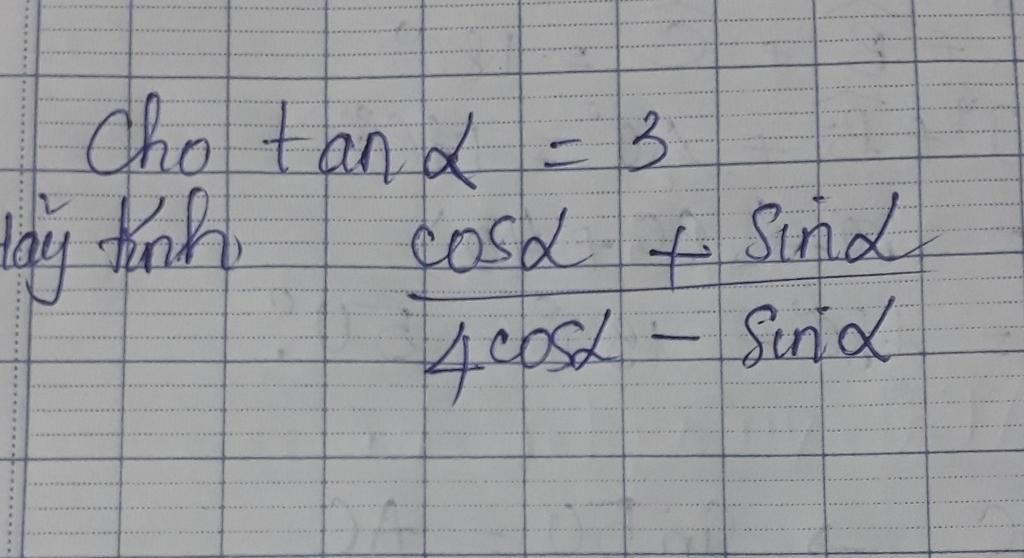 Cho tan α = 3
Hãy tính cosα + sinα
4cosα - sinα